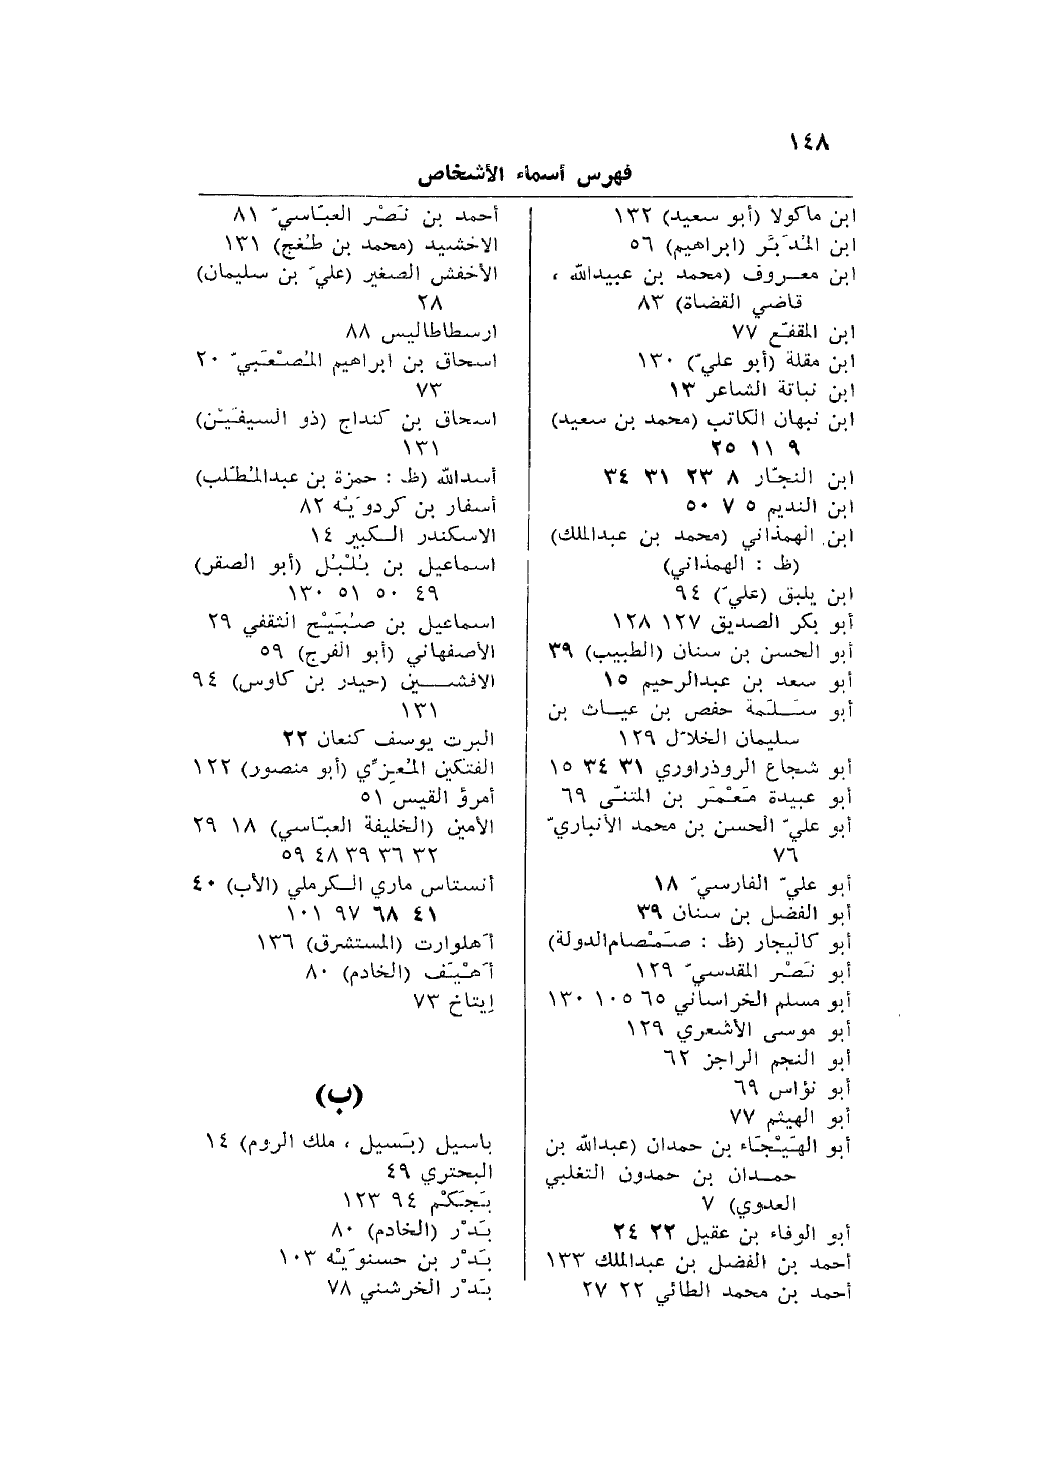 ١٤٨
فهرس أسماء الأشخاص
ابن ماكولا (أبو سعيد) ١٣٢
ابن المُدَبَّر (ابراهيم) ٥٦
ابن معـروف (محمد بن عبيدالله ،
قاضي القضاة) ٨٣
ابن المقفّع ٧٧
ابن مقلة (أبو عليّ) ١٣٠
ابن نباتة الشاعر ١٣
ابن نبهان الكاتب (محمد بن سعيد)
٩ ١١ ٢٥
ابن النجّار ٨ ٢٣ ٣١ ٣٤
ابن النديم ٥ ٧ ٥٠
ابن الهمذاني (محمد بن عبدالملك)
(ظ : الهمذاني)
ابن يلبق (عليّ) ٩٤
أبو بكر الصديق ١٢٧ ١٢٨
أبو الحسن بن سنان (الطبيب) ٣٩
أبو سعد بن عبدالرحيم ١٥
أبو سَـلَـمة حفص بن غيـاث بن
سليمان الخلاّل ١٢٩
أبو شجاع الروذراوري ٣١ ٣٤ ١٥
أبو عبيدة مَعْمَر بن المثنّى ٦٩
أبو عليّ الحسن بن محمد الأنباريّ
٧٦
أبو عليّ الفارسيّ ١٨
أبو الفضل بن سنان ٣٩
أبو كاليجار (ظ : صَمْصامالدولة)
أبو نَصْر المقدسيّ ١٢٩
أبو مسلم الخراساني ٦٥ ١٠٥ ١٣٠
أبو موسى الأشعري ١٢٩
أبو النجم الراجز ٦٢
أبو نؤاس ٦٩
أبو الهيثم ٧٧
أبو الهَيْجَاء بن حمدان (عبدالله بن
حمـدان بن حمدون التغلبي
العدوي) ٧
أبو الوفاء بن عقيل ٢٢ ٢٤
أحمد بن الفضل بن عبدالملك ١٣٣
أحمد بن محمد الطائي ٢٢ ٢٧
أحمد بن نَصْر العبّاسيّ ٨١
الاخشيد (محمد بن طغج) ١٣١
الأخفش الصغير (عليّ بن سليمان)
٢٨
ارسطاطاليس ٨٨
اسحاق بن ابراهيم المُصْعَبيّ ٢٠
٧٣
اسحاق بن كنداج (ذو السيفَيْن)
١٣١
أسدالله (ظ : حمزة بن عبدالمُطّلب)
أسفار بن كردوَيْه ٨٢
الاسكندر الـكبير ١٤
اسماعيل بن بُلْبُل (أبو الصقر)
٤٩ ٥٠ ٥١ ١٣٠
اسماعيل بن صُبَيْح الثقفي ٢٩
الأصفهاني (أبو الفرج) ٥٩
الافشــــين (حيدر بن كاوس) ٩٤
١٣١
البرت يوسف كنعان ٢٢
الفتكين المُعِزّي (أبو منصور) ١٢٢
أمرؤ القيس ٥١
الأمين (الخليفة العبّاسي) ١٨ ٢٩
٣٢ ٣٦ ٣٩ ٤٨ ٥٩
أنستاس ماري الـكرملي (الأب) ٤٠
٤١ ٦٨ ٩٧ ١٠١
أهلوارت (المستشرق) ١٣٦
أهْيَف (الخادم) ٨٠
إيتاخ ٧٣
(ب)
باسيل (بَسيل ، ملك الروم) ١٤
البحتري ٤٩
بَجَكْم ٩٤ ١٢٣
بَدْر (الخادم) ٨٠
بَدْر بن حسنوَيْه ١٠٣
بَدْر الخرشني ٧٨